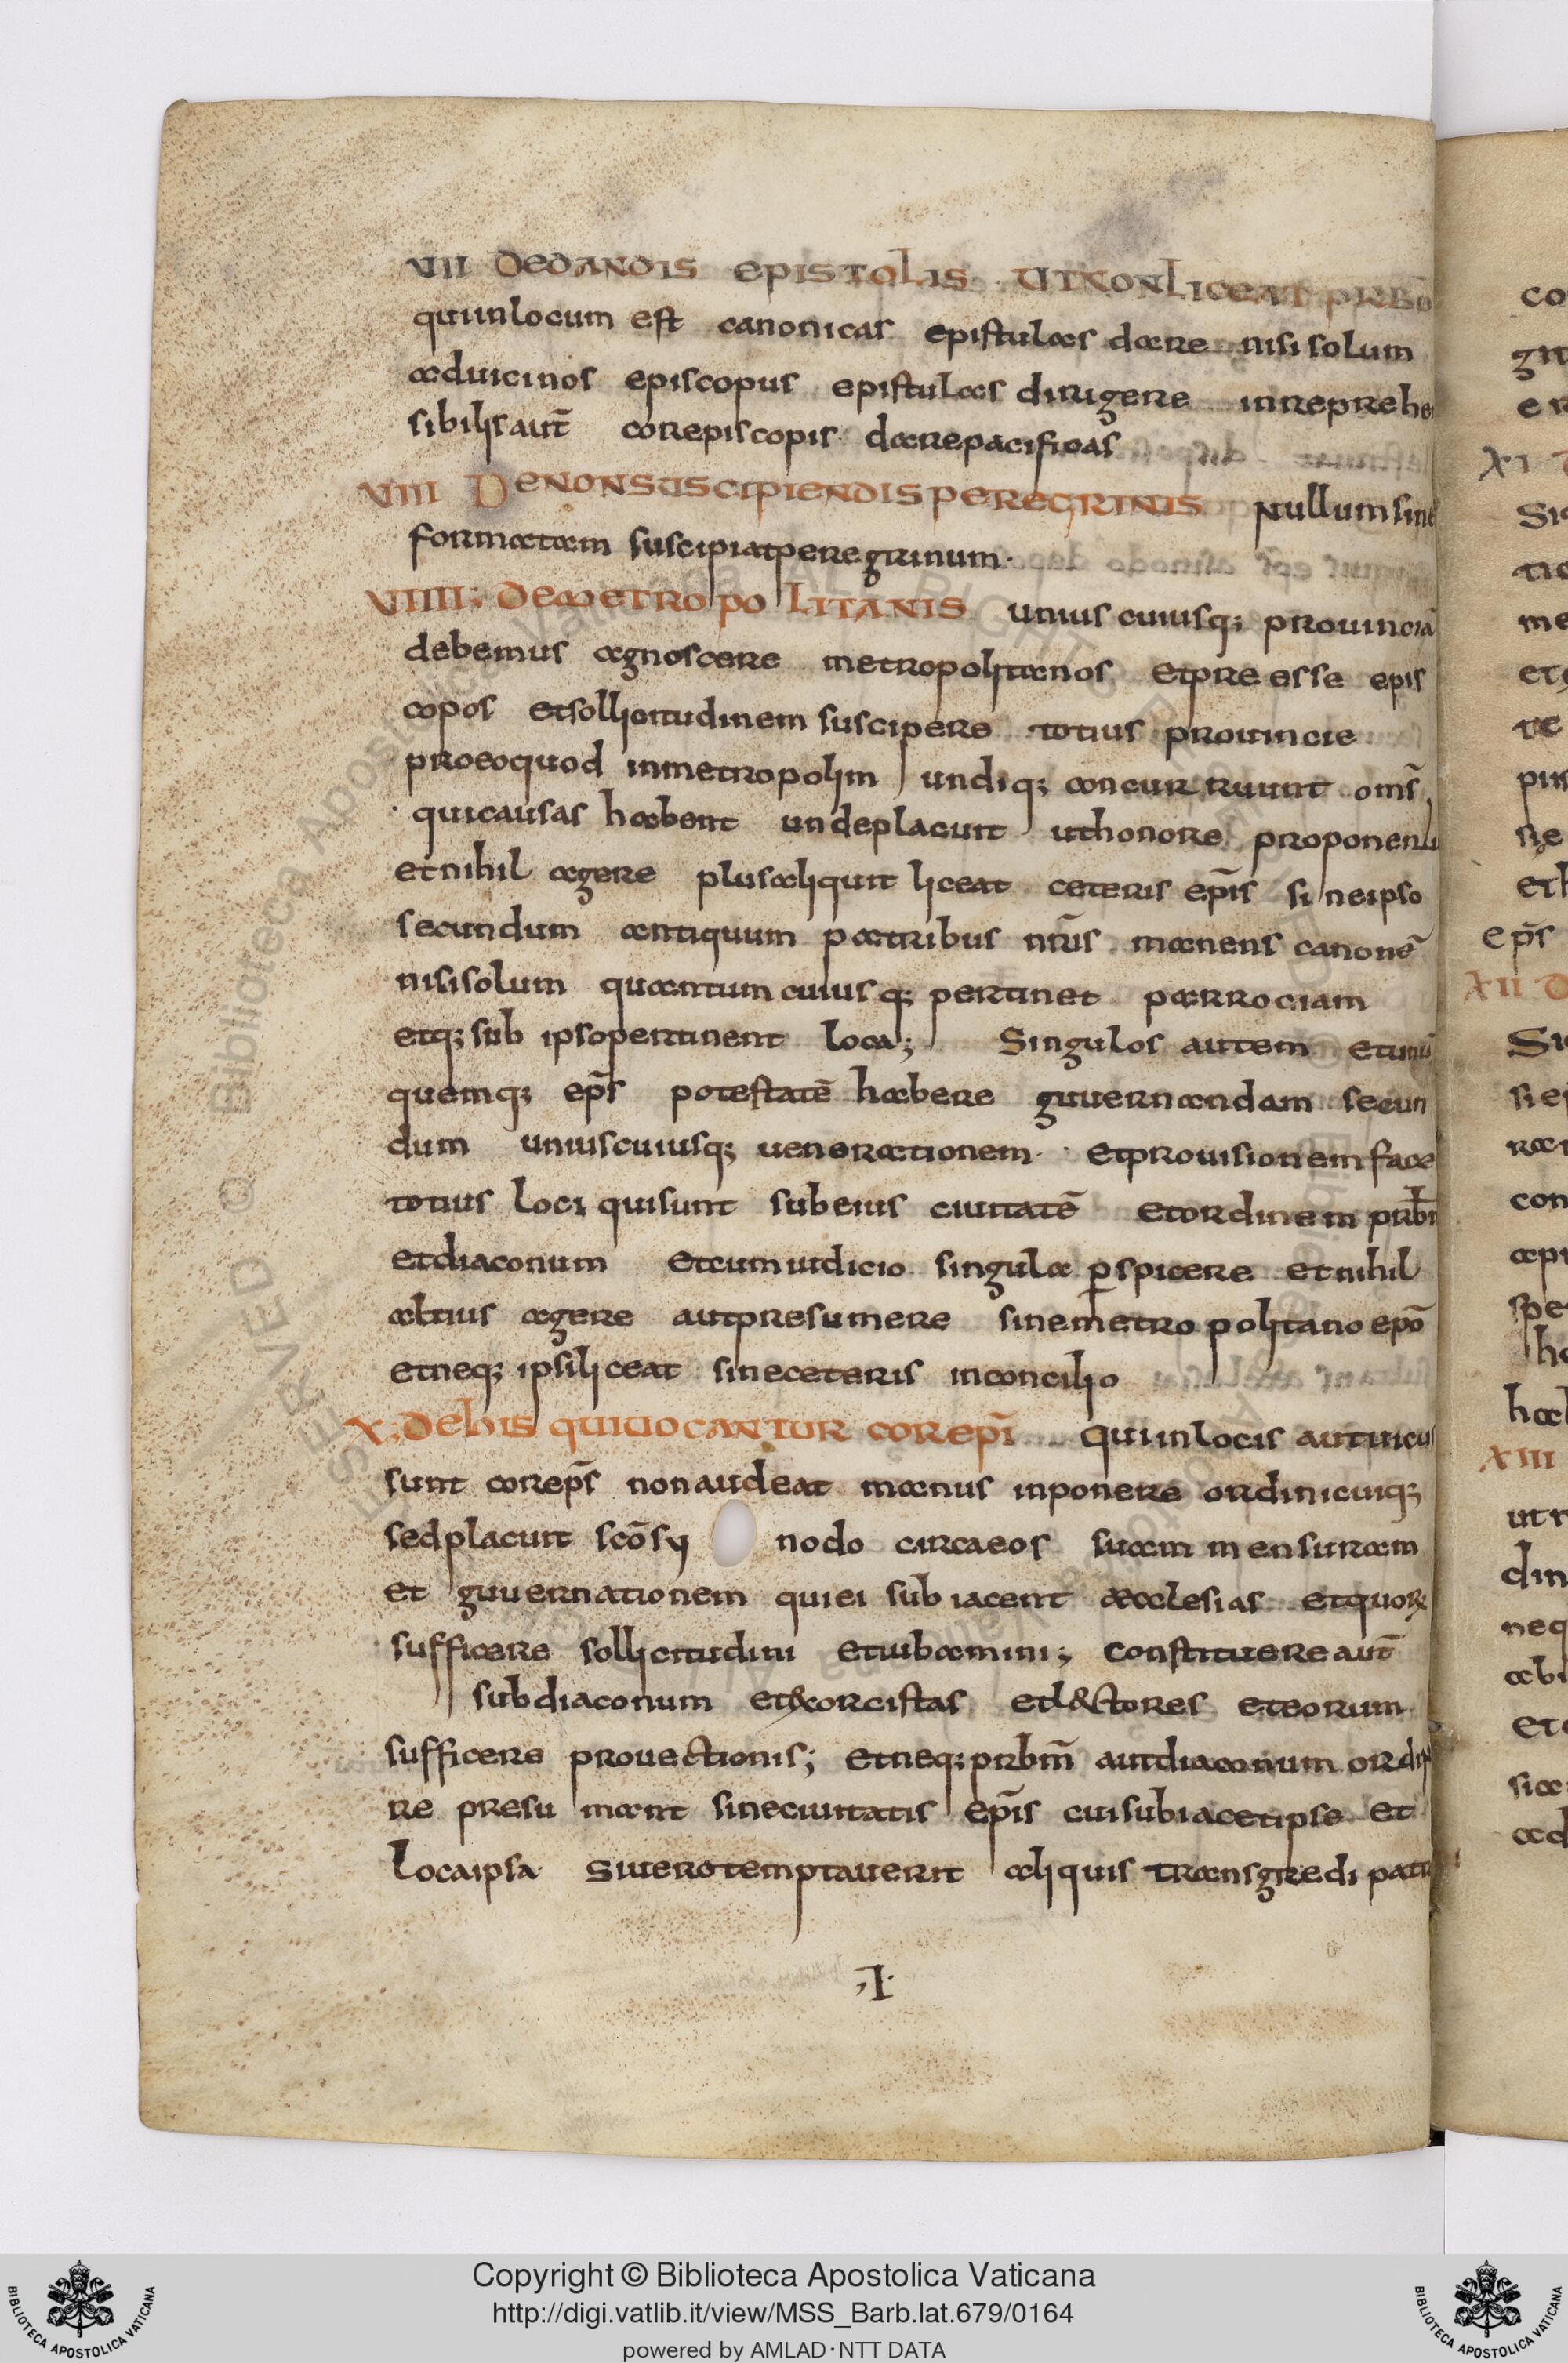 VII DEDANDIS EPISTOLIS UTNONLICEAT PRBO
quiinlocum est canonicas epistulas dare nisi solum
aduicinos episcopus epistulas dirigere inreprehe
sibilis aut̄ corepiscopis darepacificas
VIII DENONSUSCIPIENDISPEREGRINIS Nullumsine
formatam suscipiatperegrinum·
VIIII; DEMETROPO LITANIS uniuscuiusq; prouinciā
debemus agnoscere metropolitanos etpreesse epis
copos etsollicitudinem suscipere totius prouincie
proeoquod inmetropolim undiq; concurruunt oms̄
quicausas habent undeplacuit uthonore proponent
etnihil agere plusaliquit liceat ceteris ep̄is sineipso
secundum antiquum patribus nr̄is manens canonē
nisisolum quantum cuiusq; pertinet parrociam
etq; sub ipsopertinent loca; Singulos autem etunū
quemq; ep̄s potestatē habere guuernandam secun
dum uniuscuiusq; uenerationem· etprouisionemface
totius loci quisunt subeius ciuitatē etordinem prbr̄
etdiaconum etcumiudicio singula ꝑspicere etnihil
altius agere autpresumere sinemetropolitano epō
etneq; ipsiliceat sineceteris inconcilio
X; DEHIS QUIUOCANTUR COREPĪ Quiinlocis autuicu
sunt corep̄s nonaudeat manus inponere ordinicuiq;
sedplacuit scōsy nodo circaeos suam mensuram
et guuernationem quiei subiacent aecclesias etquoꝝ
sufficere sollicitudini etiubamini; Constituereaut̄
subdiaconum etexorcistas etl&ctores eteorum
sufficere prouectionis; etneq; prbm̄ autdiaconum ordin
re presu mant sineciuitatis ep̄is cuisubiacetipse et
locaipsa Siuerotemptauerit aliquis transgredi patu
,I·
CO
ER
XI
SIG
TIO
ME
TE
EP̄S
XII D
CON
XIII
UT
DIN
NEQ
Copyright © Biblioteca Apostolica Vaticana
http://digi.vatlib.it/view/MSS_Barb.lat.679/0164
powered by AMLAD·NTT DATA
BIBLIOTECA APOSTOLICA VATICANA
BIBLIOTECA APOSTOLICA VATICANA